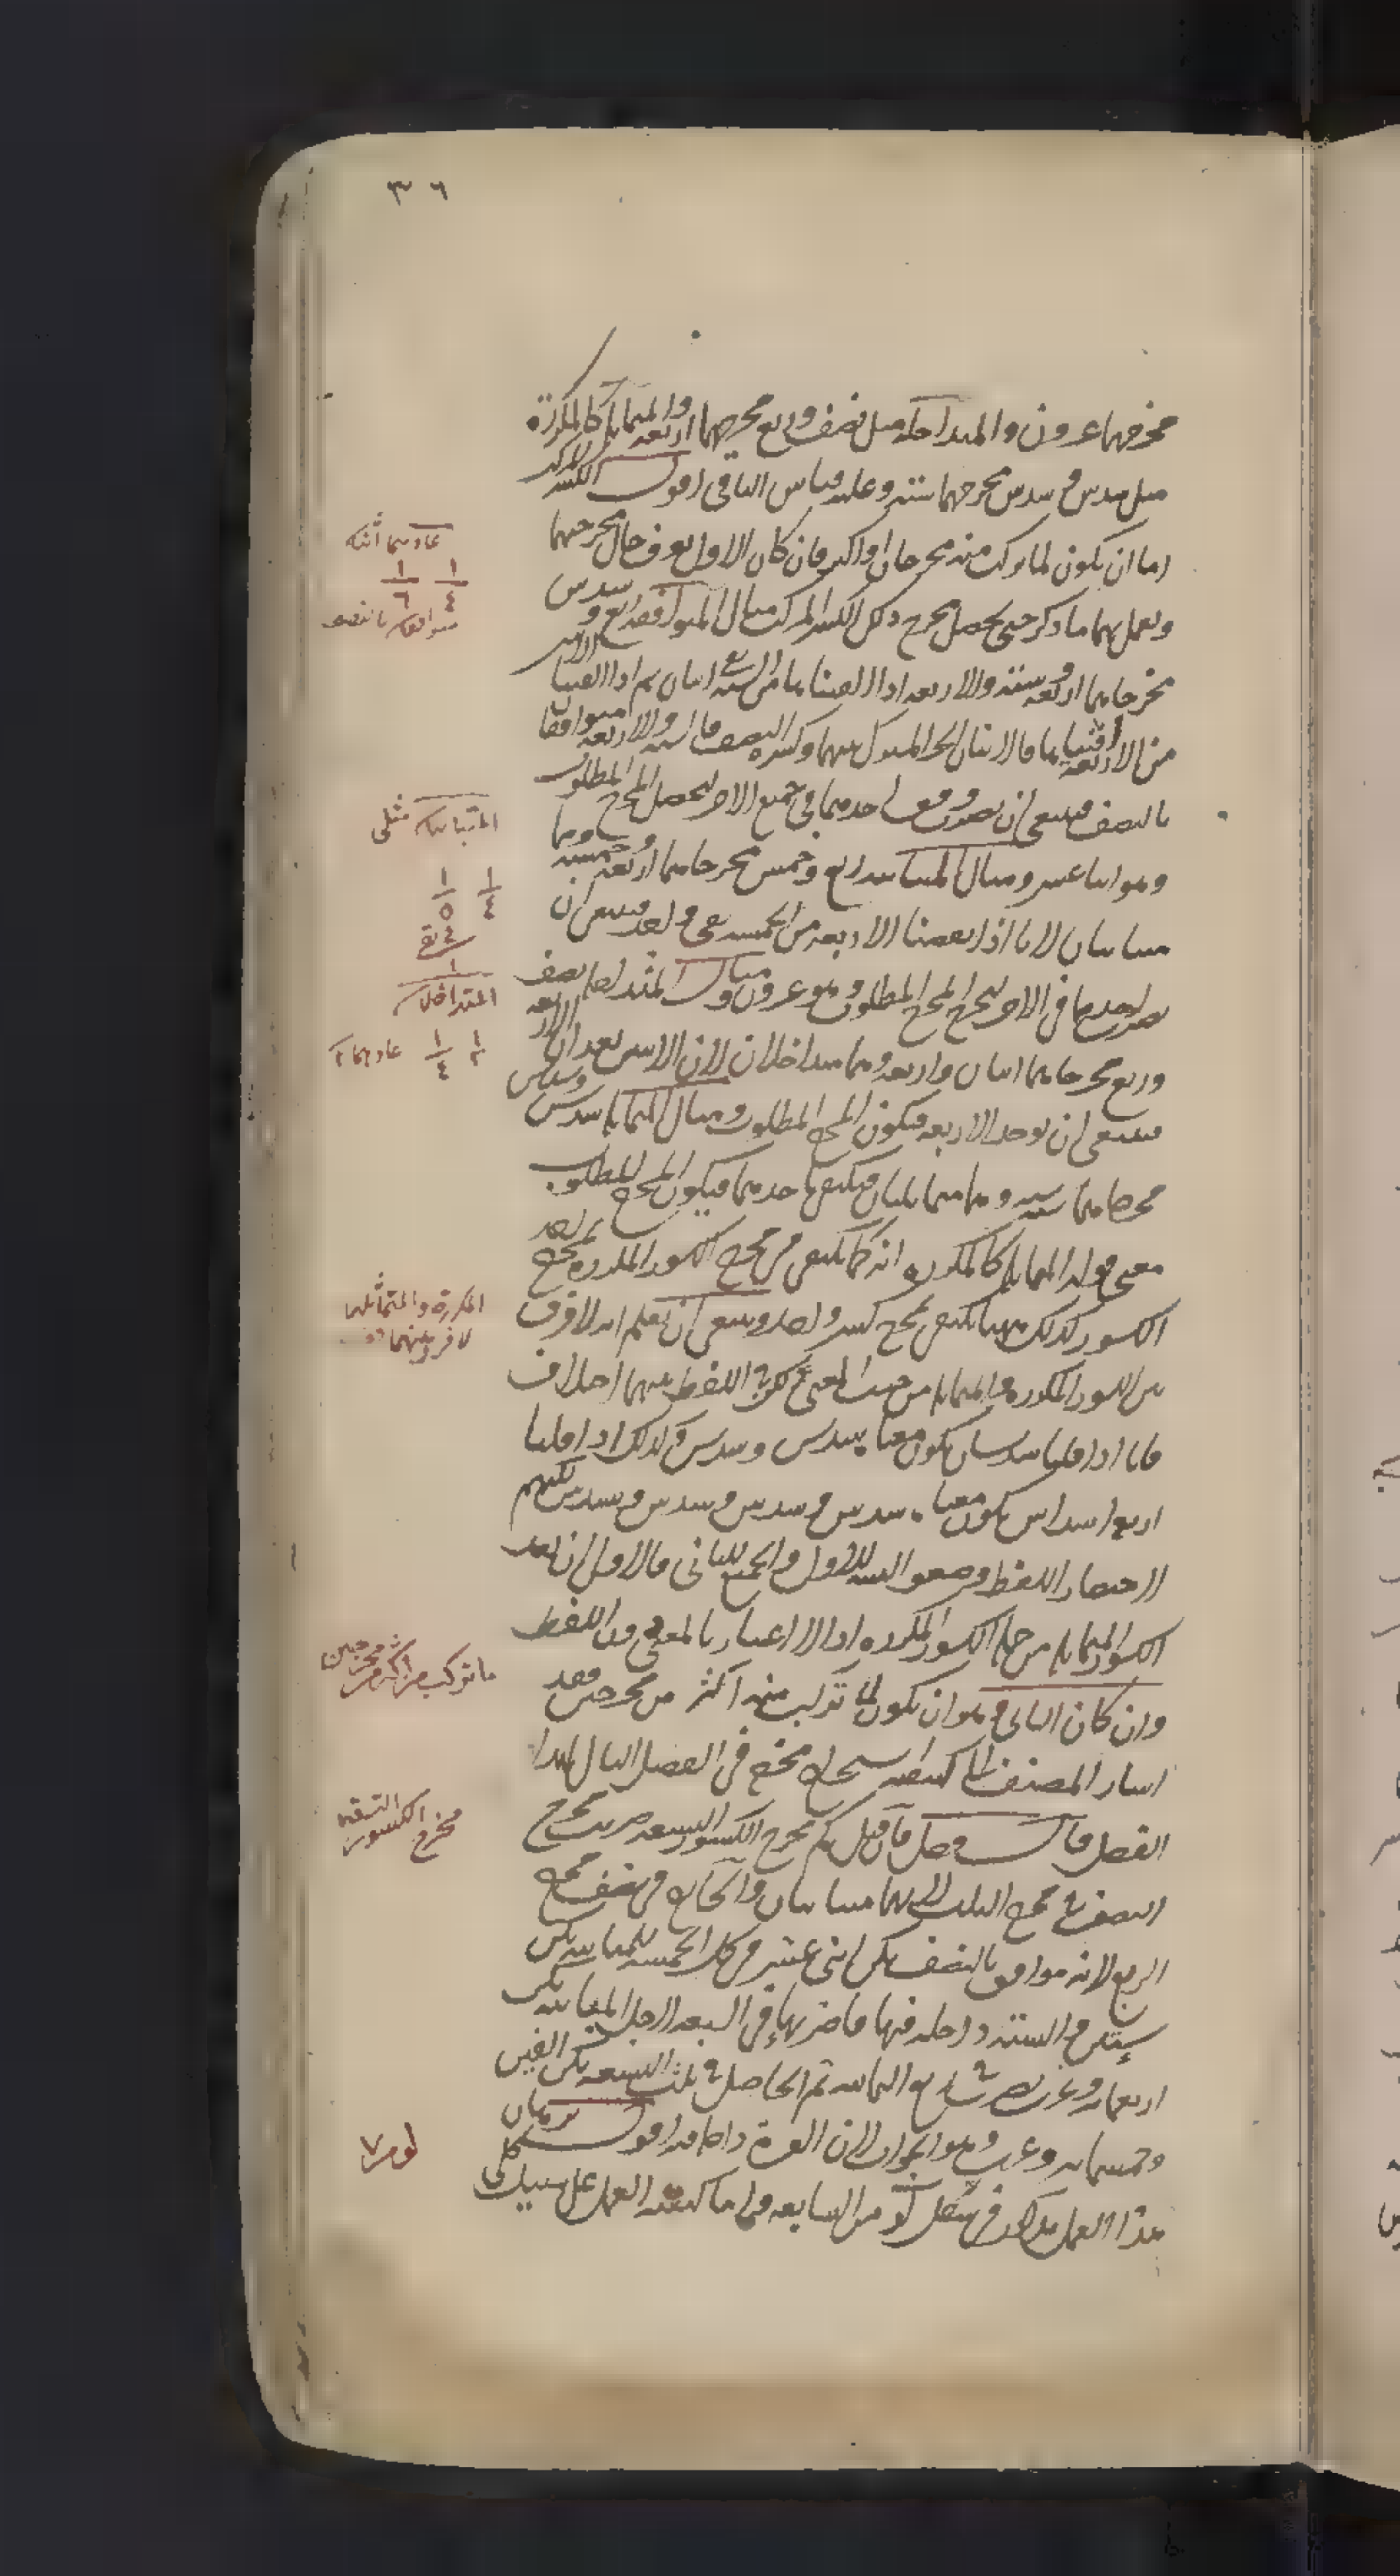 ٣٦
مخرجهما عشرون والمتداخلة مثل نصف وربع مخرجهما اربعة والمتماثلة كالمكررة
مثل سدس وسدس مخرجهما ستة وعليه قياس الباقي اقول الكسر المركب
اما ان يكون لما تركب منه مخرجان او اكثر فان كان الاول يعرف حال مخرجيهما
ويعمل بهما ما ذكر حتى يحصل مخرج ذلك الكسر المركب مثال المتوافقة ربع وسدس
مخرجاهما اربعة وستة والاربعة اذا القيناها من الستة بقى اثنان ثم اذا القينا الاثنين
من الاربعة افنياها فالاثنان الجزء المشترك بينهما وكسره النصف فالستة والاربعة متوافقان
بالنصف فينبغي ان يضرب وفق احدهما في جميع الاخر ليحصل المخرج المطلوب
وهو اثنا عشر ومثال المتباينة ربع وخمس مخرجاهما اربعة وخمسة وهما
متباينان لانا اذا نقصنا الاربعة من الخمسة بقي واحد فينبغي ان
يضرب احدهما في الاخر ليخرج المخرج المطلوب وهو عشرون ومثال المتداخلة نصف
وربع مخرجاهما اثنان واربعة وهما متداخلان لان الاثنين يعد الاربعة
فينبغي ان يوخذ الاربعة فيكون المخرج المطلوب ومثال المتماثلة سدس وسدس
مخرجاهما ستة وهما متماثلان فيكتفى باحدهما فيكون المخرج المطلوب
معنى قوله المتماثلة كالمكررة انه كما يكتفى من مخرج الكسور المكررة بمخرج احد
الكسور كذلك ههنا يكتفى بمخرج كسر واحد وينبغي ان تعلم انه لا فرق
بين الكسور المكررة والمتماثلة من حيث المعنى لكن في اللفظ بينهما اختلاف
فانا اذا قلنا سدسان يكون معناه سدس وسدس وكذلك اذا قلنا
اربع اسداس يكون معناه سدس وسدس وسدس وسدس لكنهم
لاختصار اللفظ وضعوا التثنية للاول والجمع للثاني فالاولى ان يعد
الكسور المتماثلة من جملة الكسور المكررة اذ لا اعتبار بالمعنى دون اللفظ
وان كان الثاني وهو ان يكون لما تركب منه اكثر من مخرجين فقد
اشار المصنف الى كيفية استخراج مخرجه في الفصل التالي لهذا
الفصل قال فصل فان قيل كم مخرج الكسور التسعة ضربت مخرج
النصف في مخرج الثلث لانهما متباينان والحاصل في نصف مخرج
الربع لانه موافق بالنصف يكن اثني عشر في كل الخمسة للمباينة يكن
ستين والستة داخلة فيها فاضربها في السبعة لاجل المباينة يكن
اربعمائة وعشرين في ربع الثمانية ثم الحاصل في ثلث التسعة يكن الفين
وخمسمائة وعشرين وهو الجواب لان العشرة داخلة فيه اقول برهان
هذا العمل مذكور في شكل لو من السابعة واما كيفية العمل على سبيل كلي
عادهما اثنان
١/٤ ١/٦
متوافقان بالنصف
المتباينة مثلى
١/٤ ١/٥
المتداخلان
١/٢ ١/٤ عادهما ٢
المكررة والمتماثلة
لا فرق بينهما
ما تركب من اكثر من مخرجين
مخرج الكسور التسعة
لو من ٧